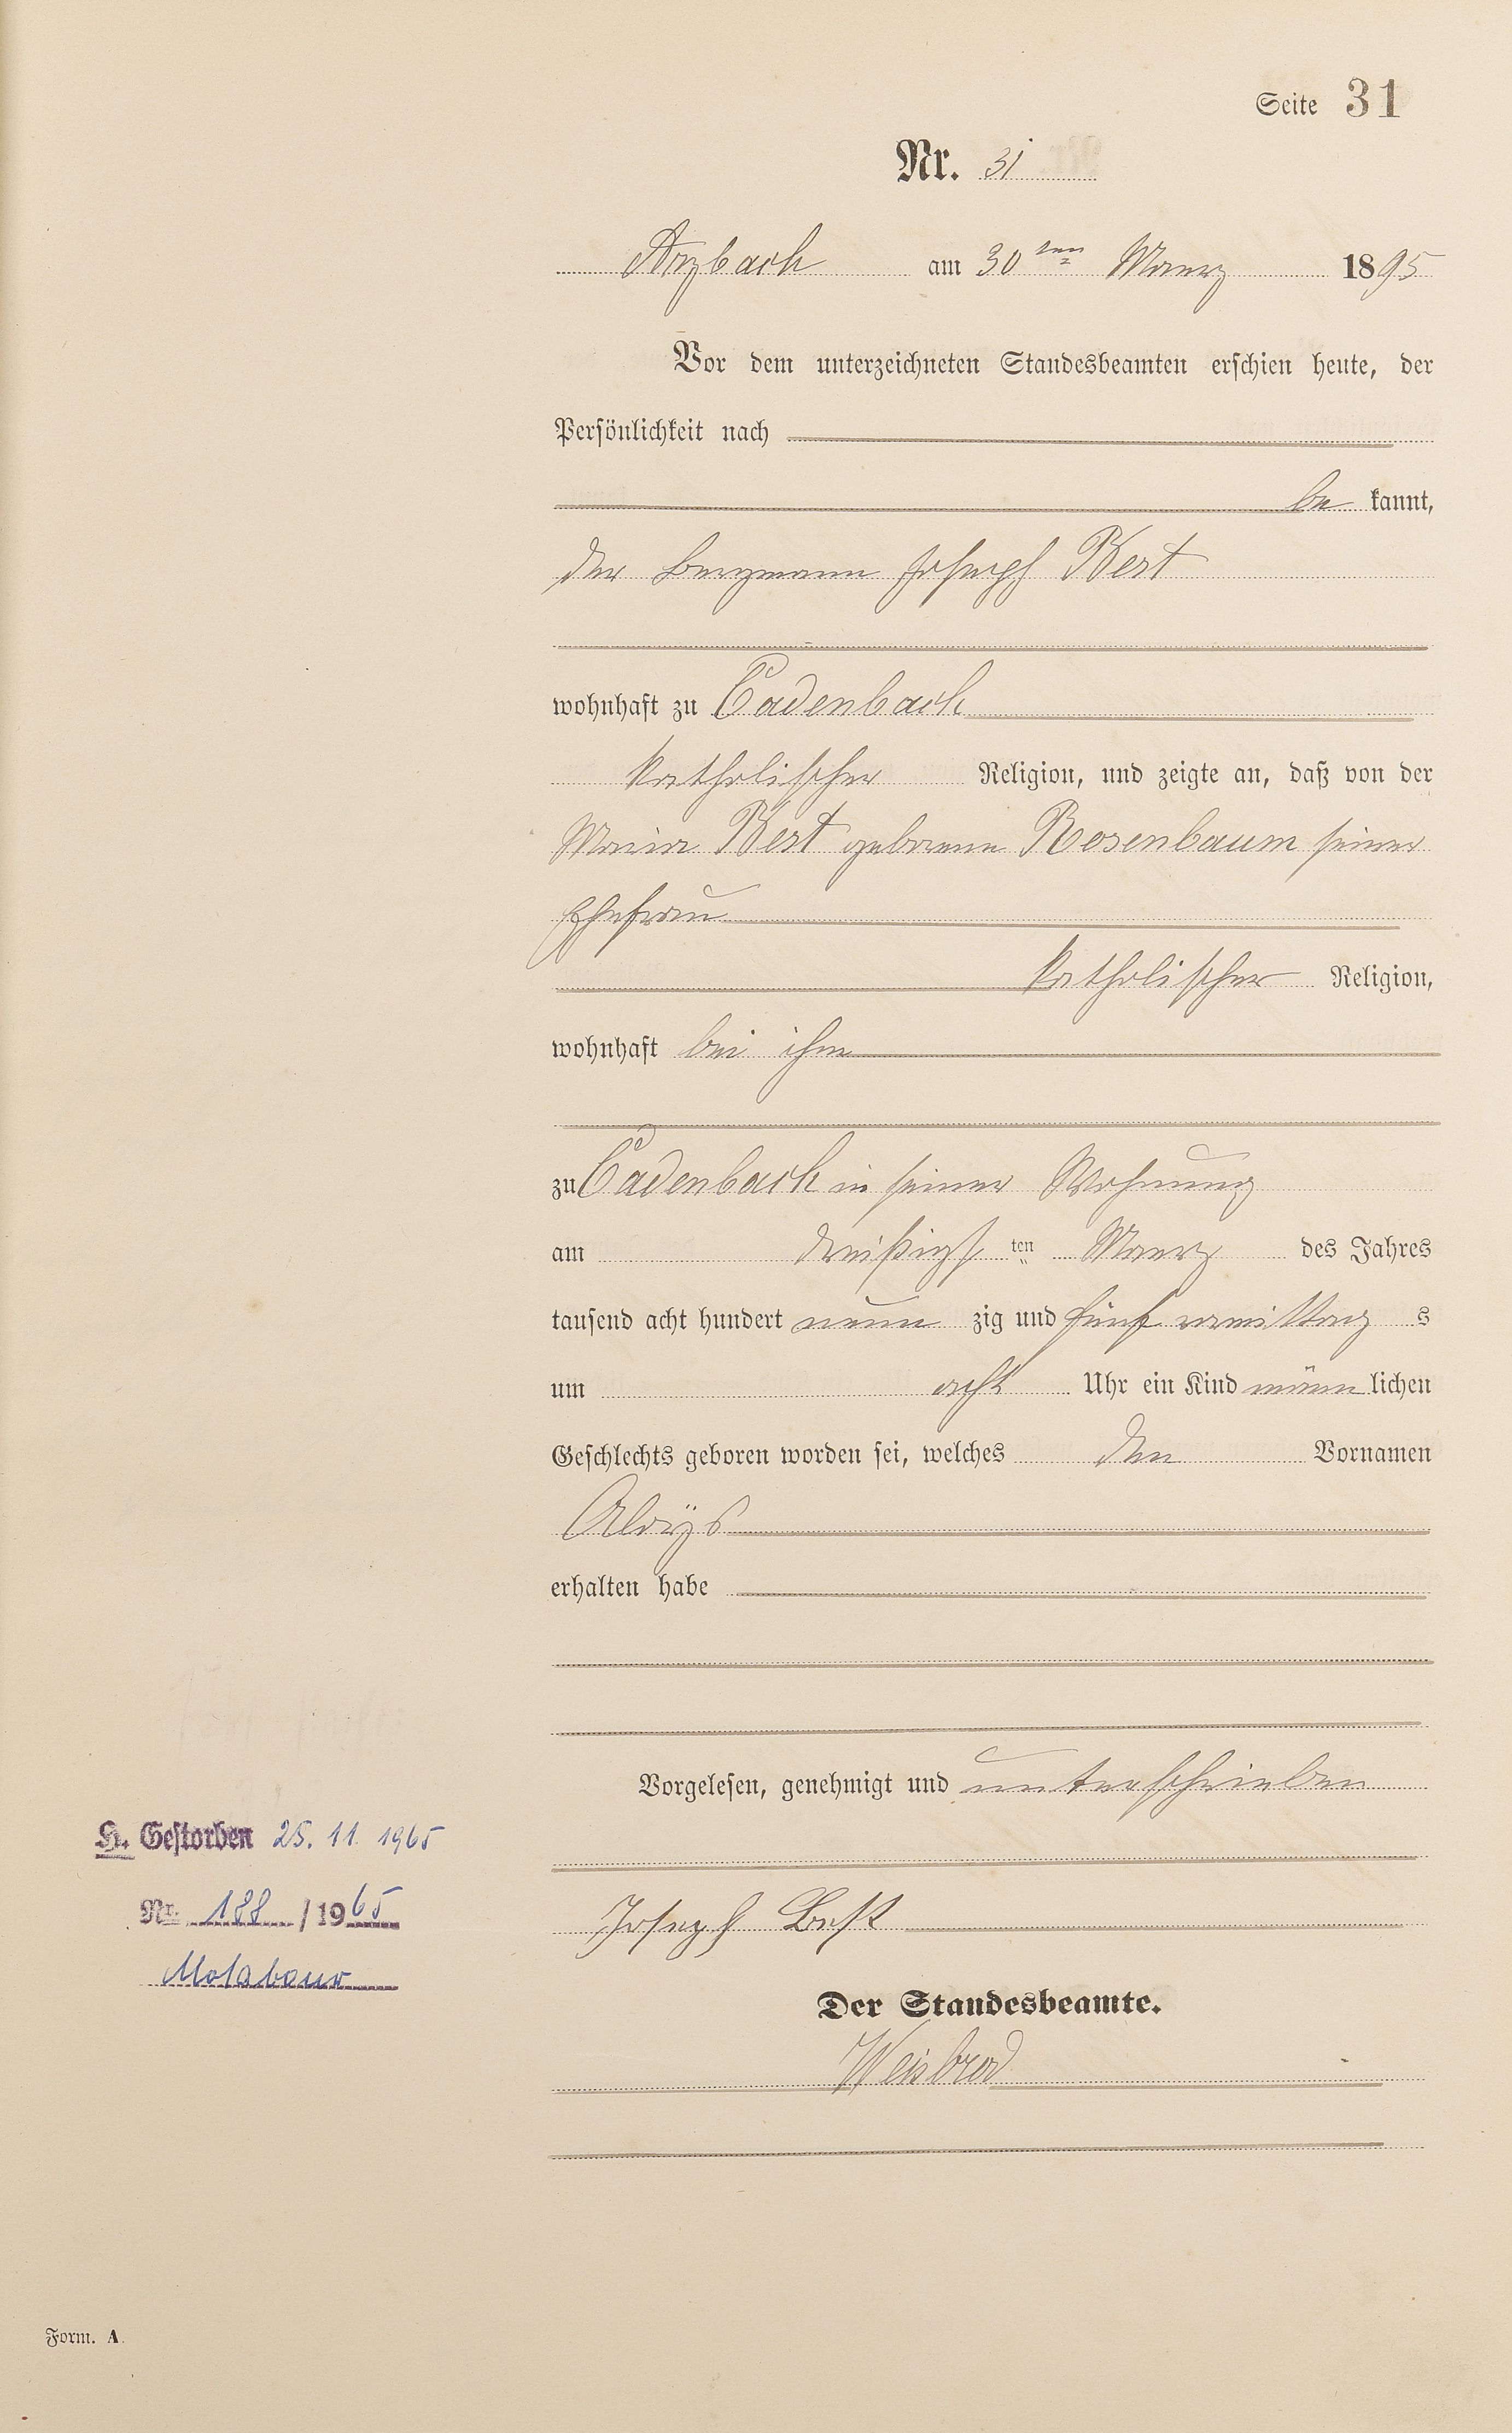 Seite 31
Nr. 31
Arzbach am 30ten Maerz 1895
Vor dem unterzeichneten Standesbeamten erschien heute, der
Persönlichkeit nach
be kannt,
der Bergmann Joseph Best
wohnhaft zu Cadenbach
katholischer Religion, und zeigte an, daß von der
Maria Best geborene Rosenbaum seiner
Ehefrau
katholischer Religion,
wohnhaft bei ihm
zu Cadenbach in seiner Wohnung
am dreißigs ten Maerz des Jahres
tausend acht hundert neun zig und fünf vormittag s
um acht Uhr ein Kind männ lichen
Geschlechts geboren worden sei, welches den Vornamen
Aloÿs
erhalten habe
Vorgelesen, genehmigt und unterschrieben
Joseph Best
Der Standesbeamte.
Weisbrod
H. Gestorben 25. 11. 1965
Nr. 188 / 1965
Form. A.